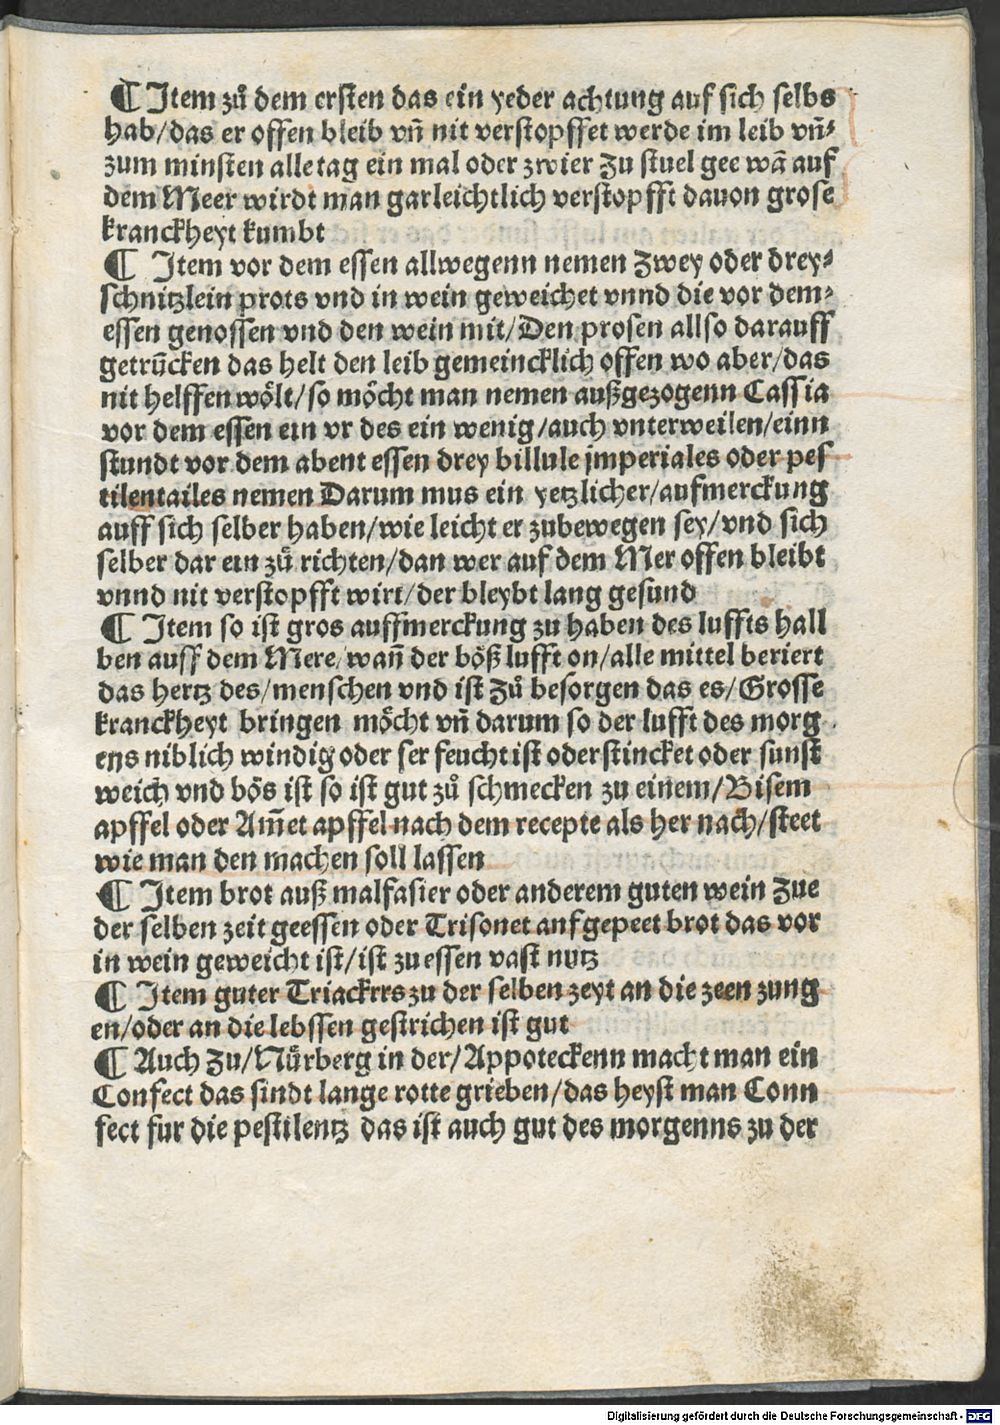 ¶ Item zů dem ersten das ein yeder achtung auf sich selbs
hab/das er offen bleib vn̄ nit verstopffet werde im leib vn̄⸗
zum minsten alle tag ein mal oder zwier zu stuel gee wā auf
dem Meer wirdt man garleichtlich verstopfft dauon grose
kranckheyt kumbt
¶ Item vor dem essen allwegenn nemen zwey oder drey⸗
schnitzlein prots vnd in wein geweichet vnnd die vor dem⸗
essen genossen vnd den wein mit/Den prosen allso darauff
getrūcken das helt den leib gemeincklich offen wo aber/das
nit helffen wölt/so möcht man nemen außgezogenn Cassia
vor dem essen ein vr des ein wenig/auch vnterweilen/einn
stundt vor dem abent essen drey billule jmperiales oder pes
tilentailes nemen Darum mus ein yetzlicher/aufmerckung
auff sich selber haben/wie leicht er zubewegen sey/vnd sich
selber dar ein zů richten/dan wer auf dem Mer offen bleibt
vnnd nit verstopfft wirt/der bleybt lang gesund
¶ Item so ist gros auffmerckung zu haben des luffts hall
ben auff dem Mere/wan̄ der böß lufft on/alle mittel beriert
das hertz des/menschen vnd ist zů besorgen das es/Grosse
kranckheyt bringen möcht vn̄ darum so der lufft des morg
ens niblich windig oder ser feucht ist oder stincket oder sunst
weich vnd bös ist so ist gut zů schmecken zu einem/Bisem
apffel oder Am̄et apffel nach dem recepte als her nach/steet
wie man den machen soll lassen
¶ Item brot auß malfasier oder anderem guten wein zue
der selben zeit geessen oder Trisonet anfgepeet brot das vor
in wein geweicht ist/ist zu essen vast nutz
¶ Item guter Triackrrs zu der selben zeyt an die zeen zung
en/oder an die lebssen gestrichen ist gut
¶ Auch zu/Nůrberg in der/Appoteckenn macht man ein
Confect das sindt lange rotte grieben/das heyst man Conn
fect fur die pestilentz das ist auch gut des morgenns zu der
Digitalisierung gefördert durch die Deutsche Forschungsgemeinschaft - DFG